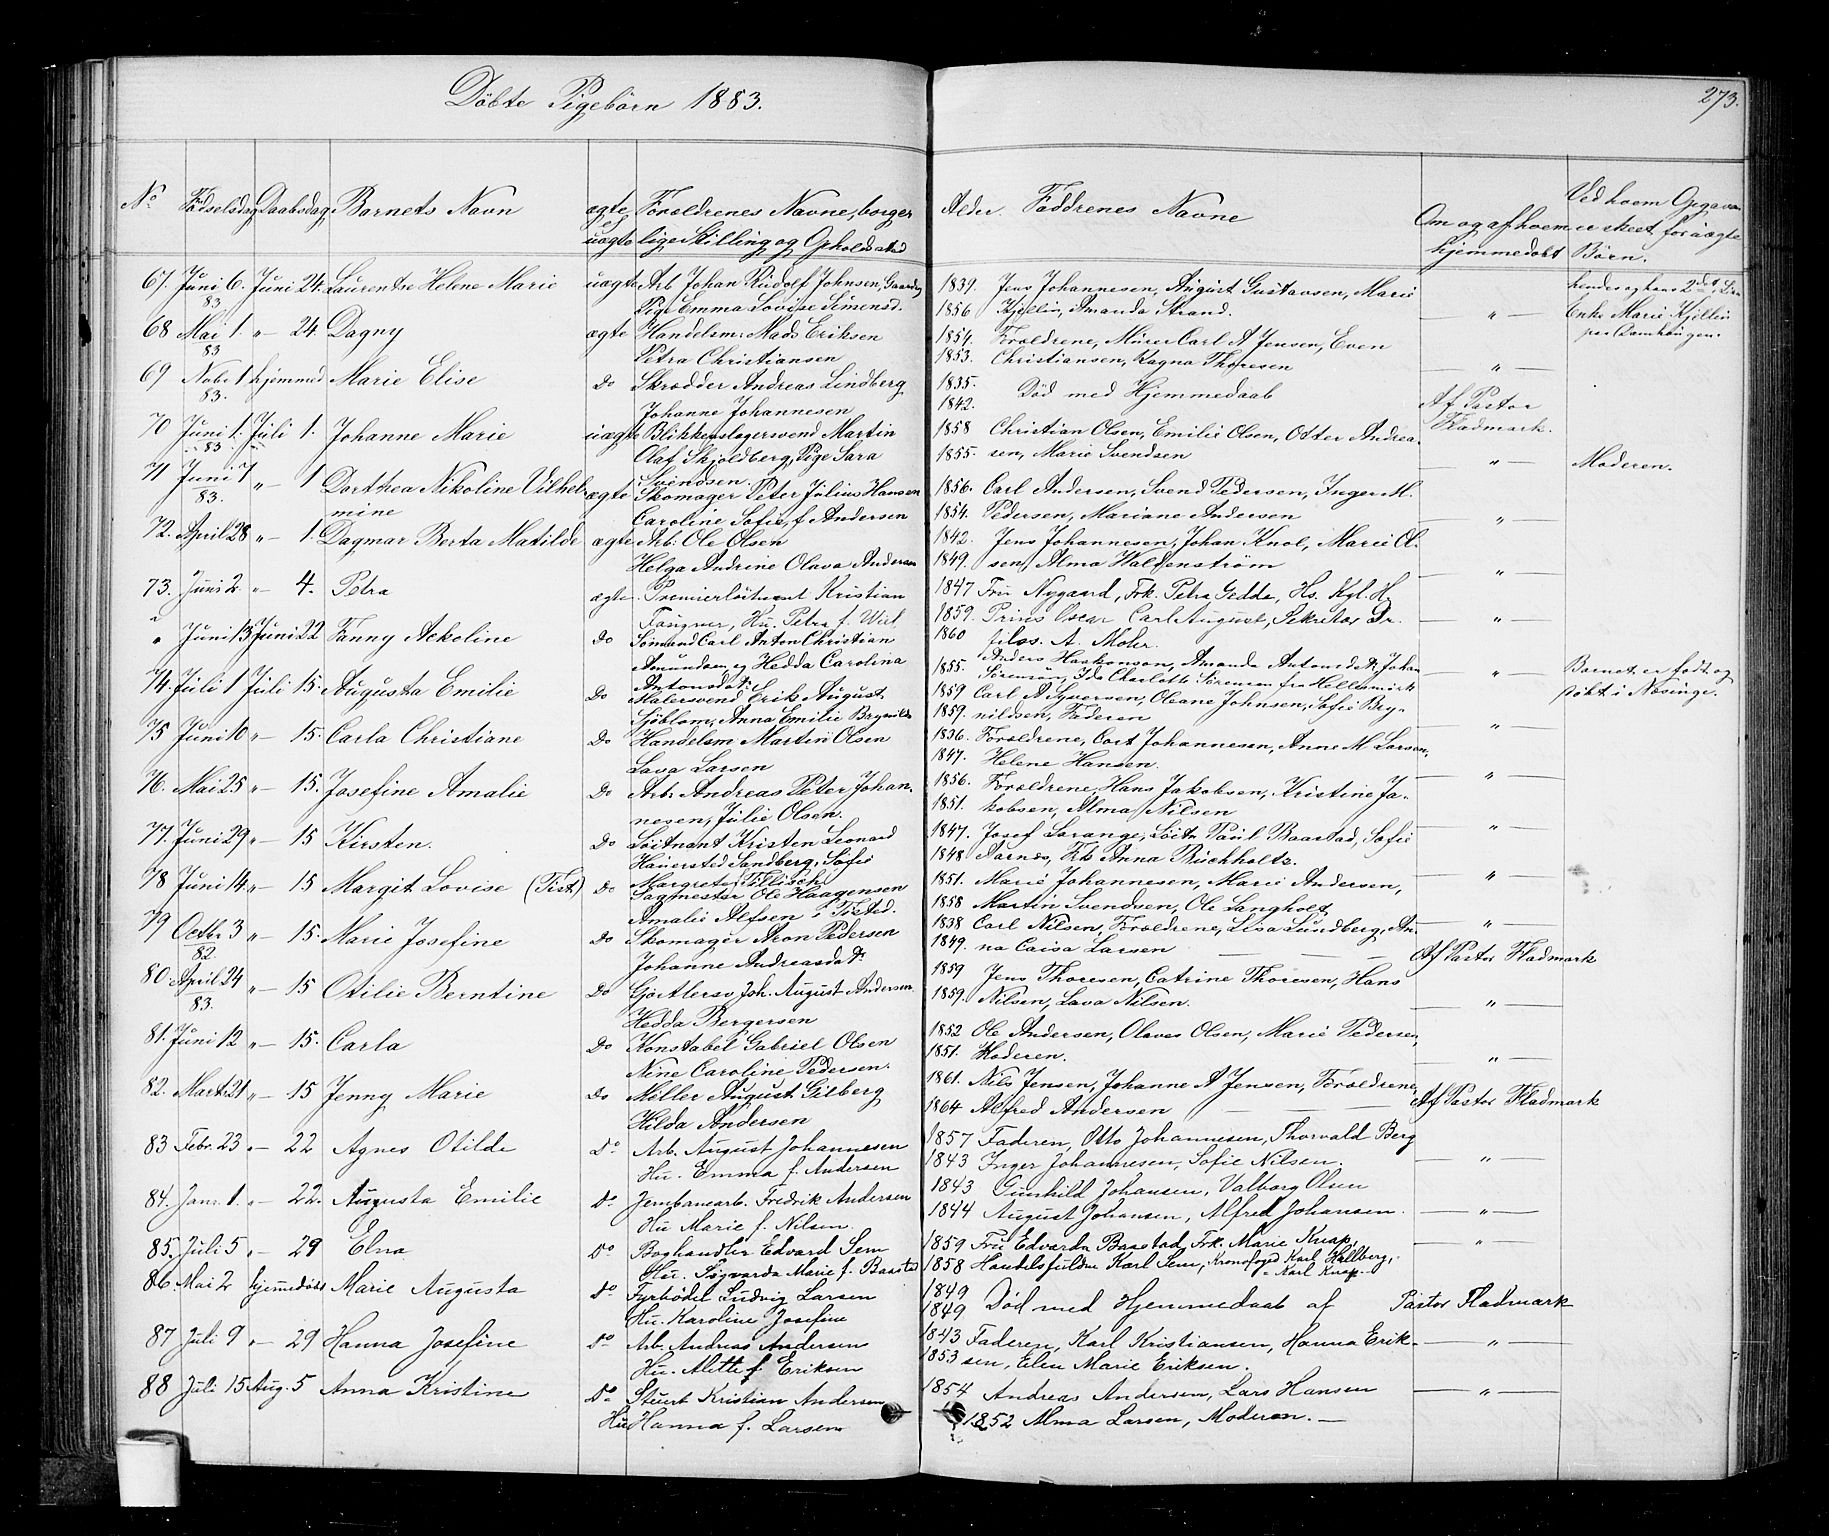 Döbte Pigebörn 1883.
273.
No Födselsdag Daabsdag Barnets Navn ægte el uægte Forældrenes Navne, borgerlige Stilling og Opholdsted Alder. Faddrenes Navne Om og af hvem hjemmedøbt Ved hvem Opgaven er skeet for uægte Börn.
67. Juni 6. 83 Juni 24. Laurentse Helene Marie uægte Arb Johan Rudolf Johnsen, 1839. Jens Johannesen, August Gustavsen, Marie
Pige Emma Lovise Simensd. 1856 Kjellin, Amanda Strand. — " — Enke Marie Kjellin
68 Mai 1. 83 " — 24. Dagny ægte Handelsm. Mads Eriksen 1854. Forældrene, Murer Carl A Jensen, Even
Petra Christiansen 1853. Christiansen, Ragna Thoresen — " —
69 Nobr 1 83. hjemmed Marie Elise Do Skrædder Andreas Lindberg 1835. Död med Hjemmedaab
Johanne Johannesen 1842. Af Pastor
70 Juni 1. 83. Juli 1. Johanne Marie uægte Blikkenslagersvend Martin 1858 Christian Olsen, Emilie Olsen, Otter Andrea- Fladmark.
Olaf Skjoldberg, Pige Sara 1855. sen, Marie Svendsen — " — Moderen.
Svendsen.
71 Juni 7 83. " — 1 Dorthea Nikoline Vilhel- ægte Skomager Peter Julius Hansen 1856. Carl Andersen, Svend Pedersen, Inger M.
mine Caroline Sofie f. Andersen 1854. Pedersen, Mariane Andersen — " —
72. April 28 " — 1. Dagmar Berta Matilde ægte Arb. Ole Olsen 1842. Jens Johannesen, Johan Knol, Marie Ol-
Helga Andrine Olava Andersen 1849. sen, Alma Waldenström — " —
73. Juni 2. " — 4. Petra ægte. Premierlöitnant Kristian 1847 Fru Nygaard, Frk. Petra Gedde, Hs. Kgl. H.
Hu. Petra f. Wiel 1859. Prins Oscar Carl August, Sekretær Dr. — " —
" Juni 13 Juni 22 Fanny Ackoline Do Sömand Carl Anton Christian 1860 filos. A. Mohr.
Amundsen, og Hedda Carolina 1855. Anders Haakonson, Amanda Antonsdatr, Johan — " — Barnet er födt og
Antonsdatr. Sörensen, Ida Charlotte Sörensen fra Hellesmörk döbt i Næsinge.
74. Juli 1 Juli 15. Augusta Emilie Do Malersvend Erik August 1859 Carl A Syversen, Oleane Johnsen, Sofie Bry-
Sjöblom, Anna Emilie Brynilds 1859. nildsen, Faderen — " —
75 Juni 10 " — 15. Carla Christiane Do Handelsm Martin Olsen 1836. Forældrene, Cort Johannesen, Anne M Larsen,
Lava Larsen 1847. Helene Hansen. — " —
76. Mai 25 " — 15. Josefine Amalie Do Arb. Andreas Peter Johan- 1856. Forældrene, Hans Jakobsen, Kristine Ja-
nesen, Julie Olsen. 1851. kobsen, Alma Nilsen — " —
77. Juni 29 " — 15 Kirsten. Do Löitnant Kristen Leonard 1847. Josef Larange, Löitn Paul Baastad, Sofie
Hauersted Sandberg, Sofie 1848 Aarnes, Frk Anna Buchholtz. — " —
Margrete Tillisch
78 Juni 14 " — 15 Margit Lovise (Tist) Do Sagmester Ole Haagensen 1851. Marie Johannesen, Marie Andersen,
Amalie Alfsen i Tisted. 1858 Martin Svendsen, Ole Langholt — " —
79 Octbr 3 82. " — 15. Marie Josefine Do Skomager Aron Pedersen 1838 Carl Nilsen, Forældrene, Lisa Lundberg, An-
Johanne Andreasdatr. 1849. na Caisa Larsen — — Af Pastor Fladmark
80. April 24 83. " — 15 Otilie Berntine Do Gjörtlersv Joh. August Andersen 1859 Jens Thoresen, Catrine Thoresen, Hans
Hedda Bergersen 1859. Nilsen, Lava Nilsen. — " —
81. Juni 12 " — 15. Carla Do Konstabel Gabriel Olsen 1852 Ole Andersen, Olaves Olsen, Marie Pedersen,
Nine Caroline Pedersen. 1851. Moderen. — " —
82. Marts 21 " — 15 Jenny Marie Do Möller August Gilberg 1861. Nils Jensen, Johanne A Jensen, Forældrene,
Hilda Andersen 1864 Alfred Andersen — — Af Pastor Fladmark
83 Febr. 23 " — 22 Agnes Otilde Do Arb. August Johannesen 1857 Faderen, Otto Johannesen, Thorvald Berg
Hu. Emma f. Andersen 1843 Inger Johannesen, Sofie Nilsen. — " —
84. Janr. 1. " — 22. Augusta Emilie Do Jernbanearb. Fredrik Andersen 1843 Gunhild Johansen, Valborg Olsen
Hu Marie f. Nilsen. 1844 August Johansen, Alfred Johansen. — " —
85. Juli 5 " — 29 Elna Do Boghandler Edvard Sem 1859 Fru Edvarda Baastad, Frk. Marie Knap, — " —
Hu. Sigvarda Marie f. Baastad 1858 Handelsfuldm Karl Sem, Kronofoged Karl Hallberg,
" Karl Knap.
86. Mai 2 hjemmedöbt Marie Augusta Do Fyrbödel Ludvig Larsen 1849 Död med Hjemmedaab af Pastor Fladmark
Hu. Karoline Josefine 1849
87 Juli 9 " — 29 Hanna Josefine Do Arb. Andreas Andersen 1843 Faderen, Karl Kristiansen, Hanna Erik- — " —
Hu. Alette f. Eriksen 1853 sen, Elen Marie Eriksen.
88 Juli 15 Aug. 5 Anna Kristine Do Stuert Kristian Andersen 1854 Andreas Andersen, Lars Hansen — " —
Hu Hanna f. Larsen 1852 Alma Larsen, Moderen. —